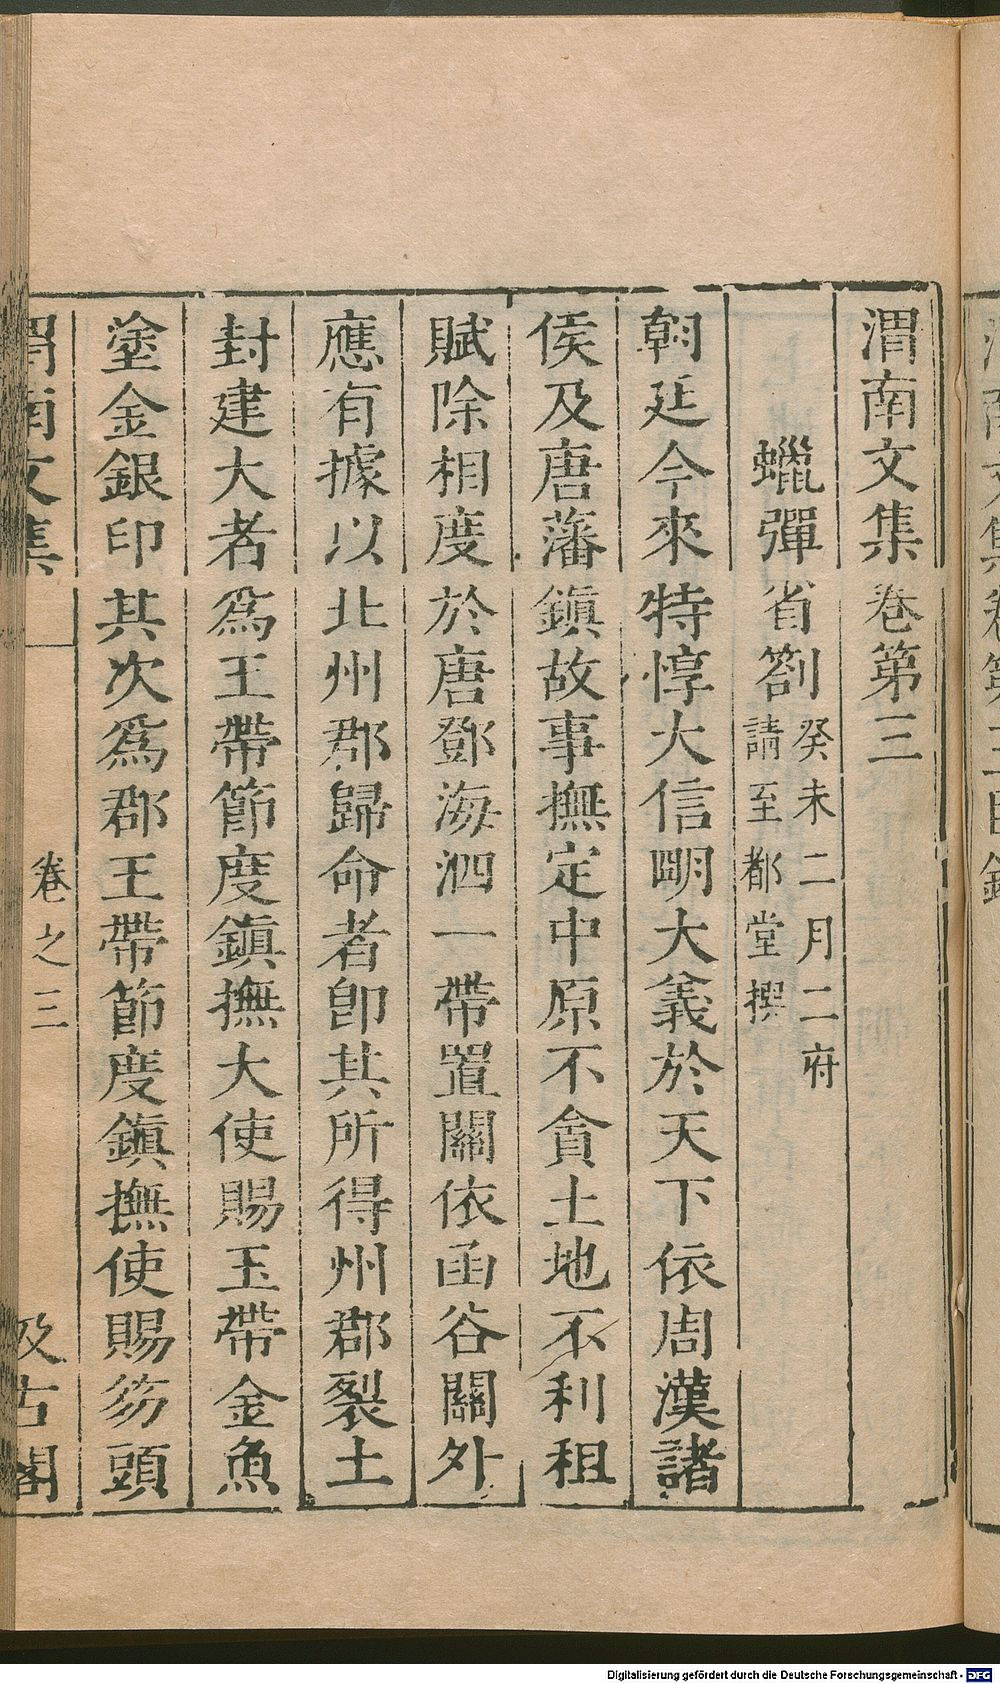 渭南文集卷第三
蠟彈省劄
癸未二月二府
請至都堂撰
朝廷今來特惇大信明大義於天下依周漢諸
侯及唐藩鎮故事撫定中原不貪土地不利租
賦除相度於唐鄧海泗一帶置關依函谷關外
應有據以北州郡歸命者卽其所得州郡裂土
封建大者爲王帶節度鎮撫大使賜玉帶金魚
塗金銀印其次爲郡王帶節度鎮撫使賜笏頭
渭南文集
卷之三
汲古閣
Digitalisierung gefördert durch die Deutsche Forschungsgemeinschaft - DFG